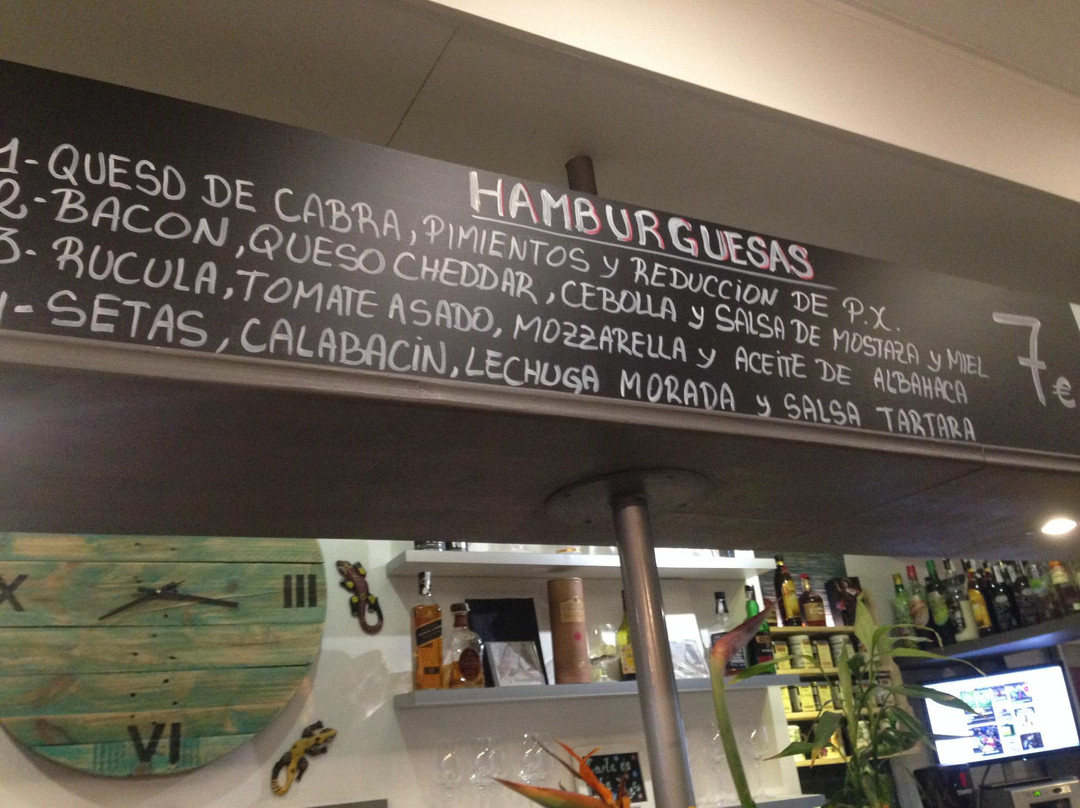 HAMBURGUESAS
1-QUESO DE CABRA, PIMIENTOS Y REDUCCION DE P.X.
2-BACON, QUESO CHEDDAR, CEBOLLA y SALSA DE MOSTAZA y MIEL
3- RUCULA, TOMATE ASADO, MOZZARELLA Y ACEITE DE ALBAHACA
4-SETAS, CALABACIN, LECHUGA MORADA y SALSA TARTARA
7€
III
VI